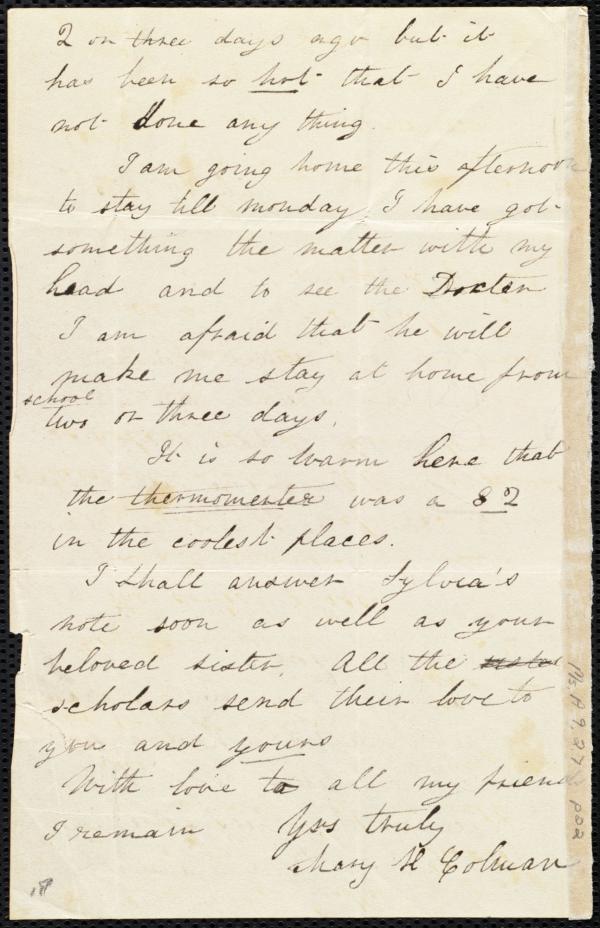 2 or three days ago but it
has been so hot that I have
not done any thing.
I am going home this afternoon
to stay till monday, I have got
something the matter with my
head and to see the Docter
I am afraid that he will
make me stay at home from
school
two or three days.
It is so warm here that
the thermomenter was a 82
in the coolest places.
I shall answer Sylvia's
note soon as well as your
beloved sister. All the
scholars send their love to
you and yours
With love to all my friend
I remain Yrs truly
Mary H Colman
Ms. A 9.2 p02
18